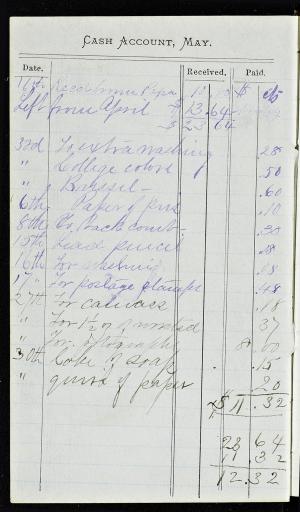 CASH ACCOUNT, MAY.
Date. Received. Paid.
11th Recd from Papa 10.00 $ cts
Left from April $ 13.64
$ 23.64
3rd To extra washing .25
" College colors .50
" .60
6th Paper of pins .10
8th To back comb .30
15th Lead pencil
16th For washing
17 " For postage stamps
27th For canvass .18
" For 1½ oz of worsted 37
" For 8 00
30th Cake of soap .15
" quire of paper 20
$ 11.32
23 64
11 32
12.32